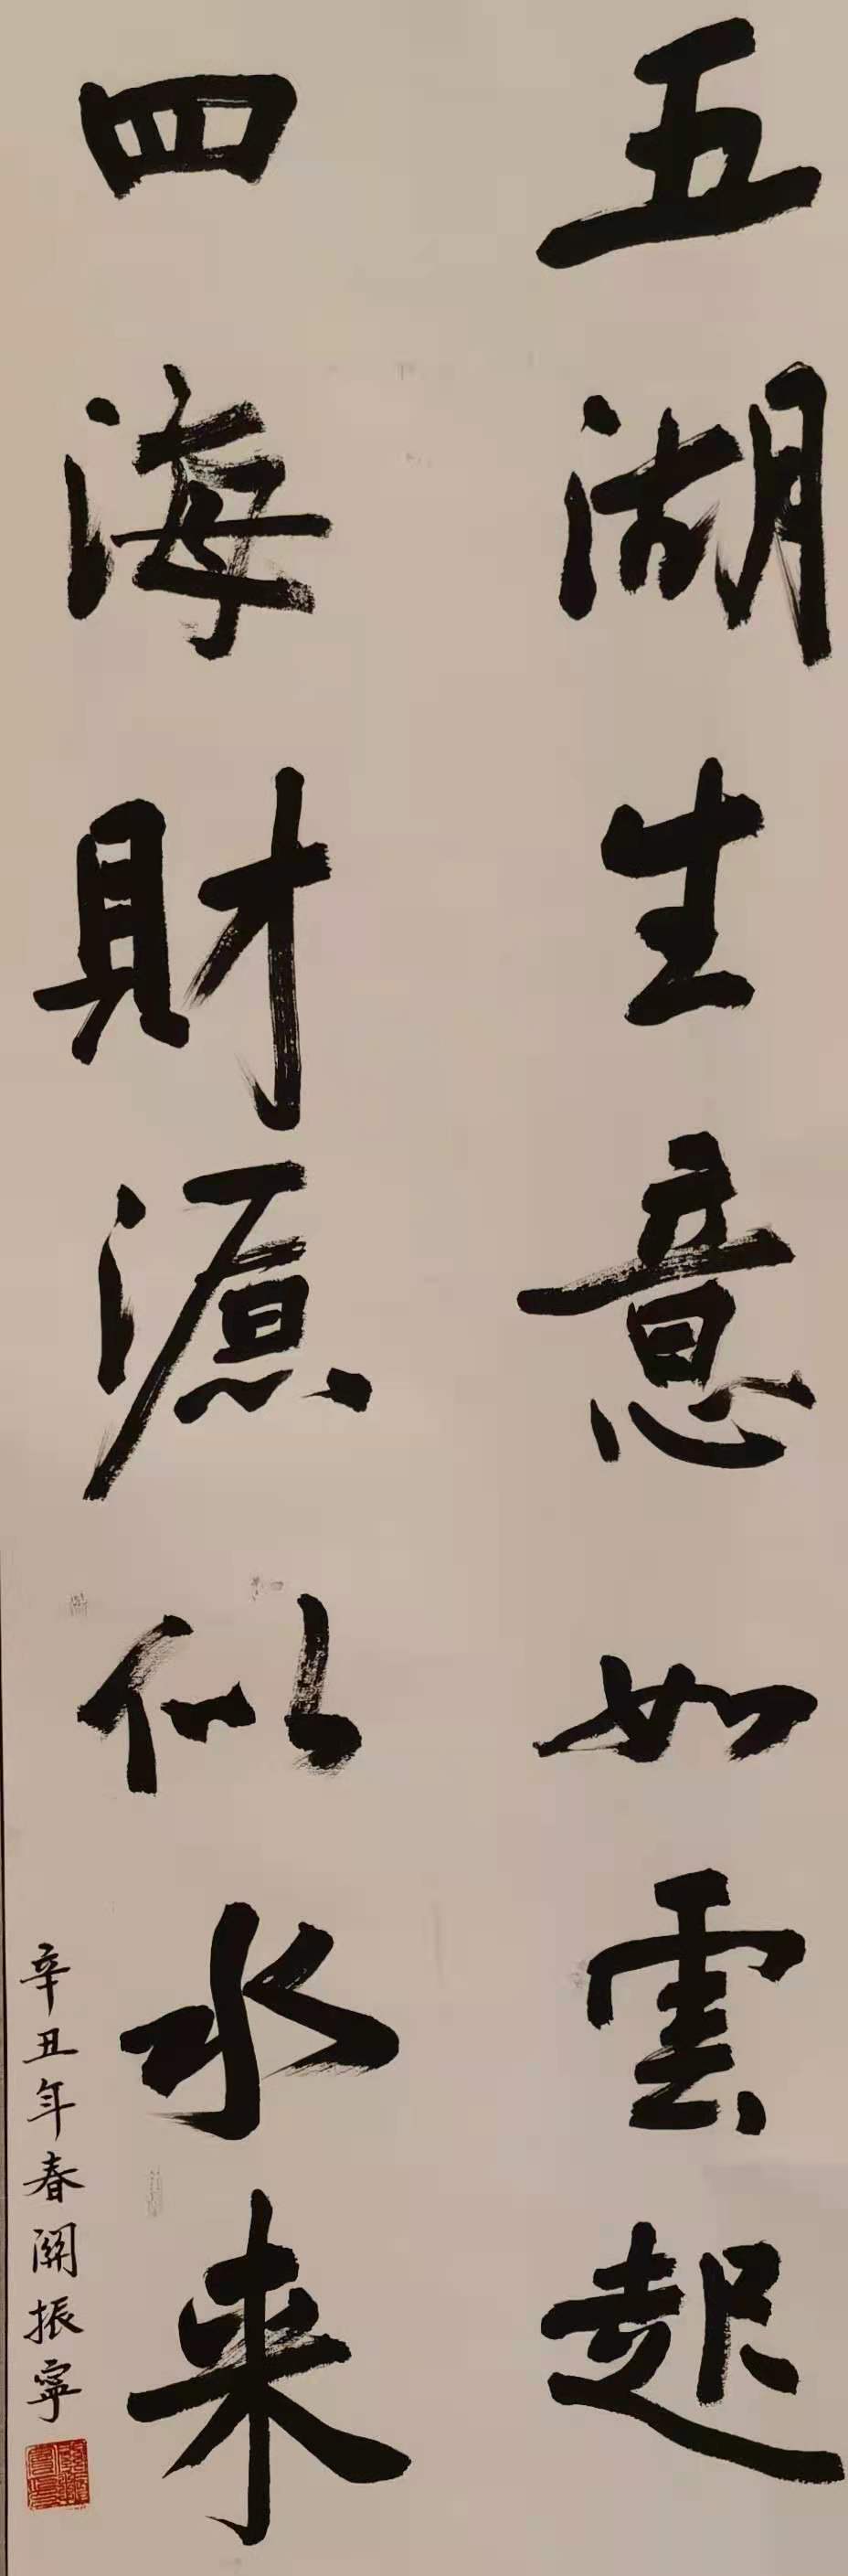 五湖生意如雲起
四海財源似水来
辛丑年春關振寧